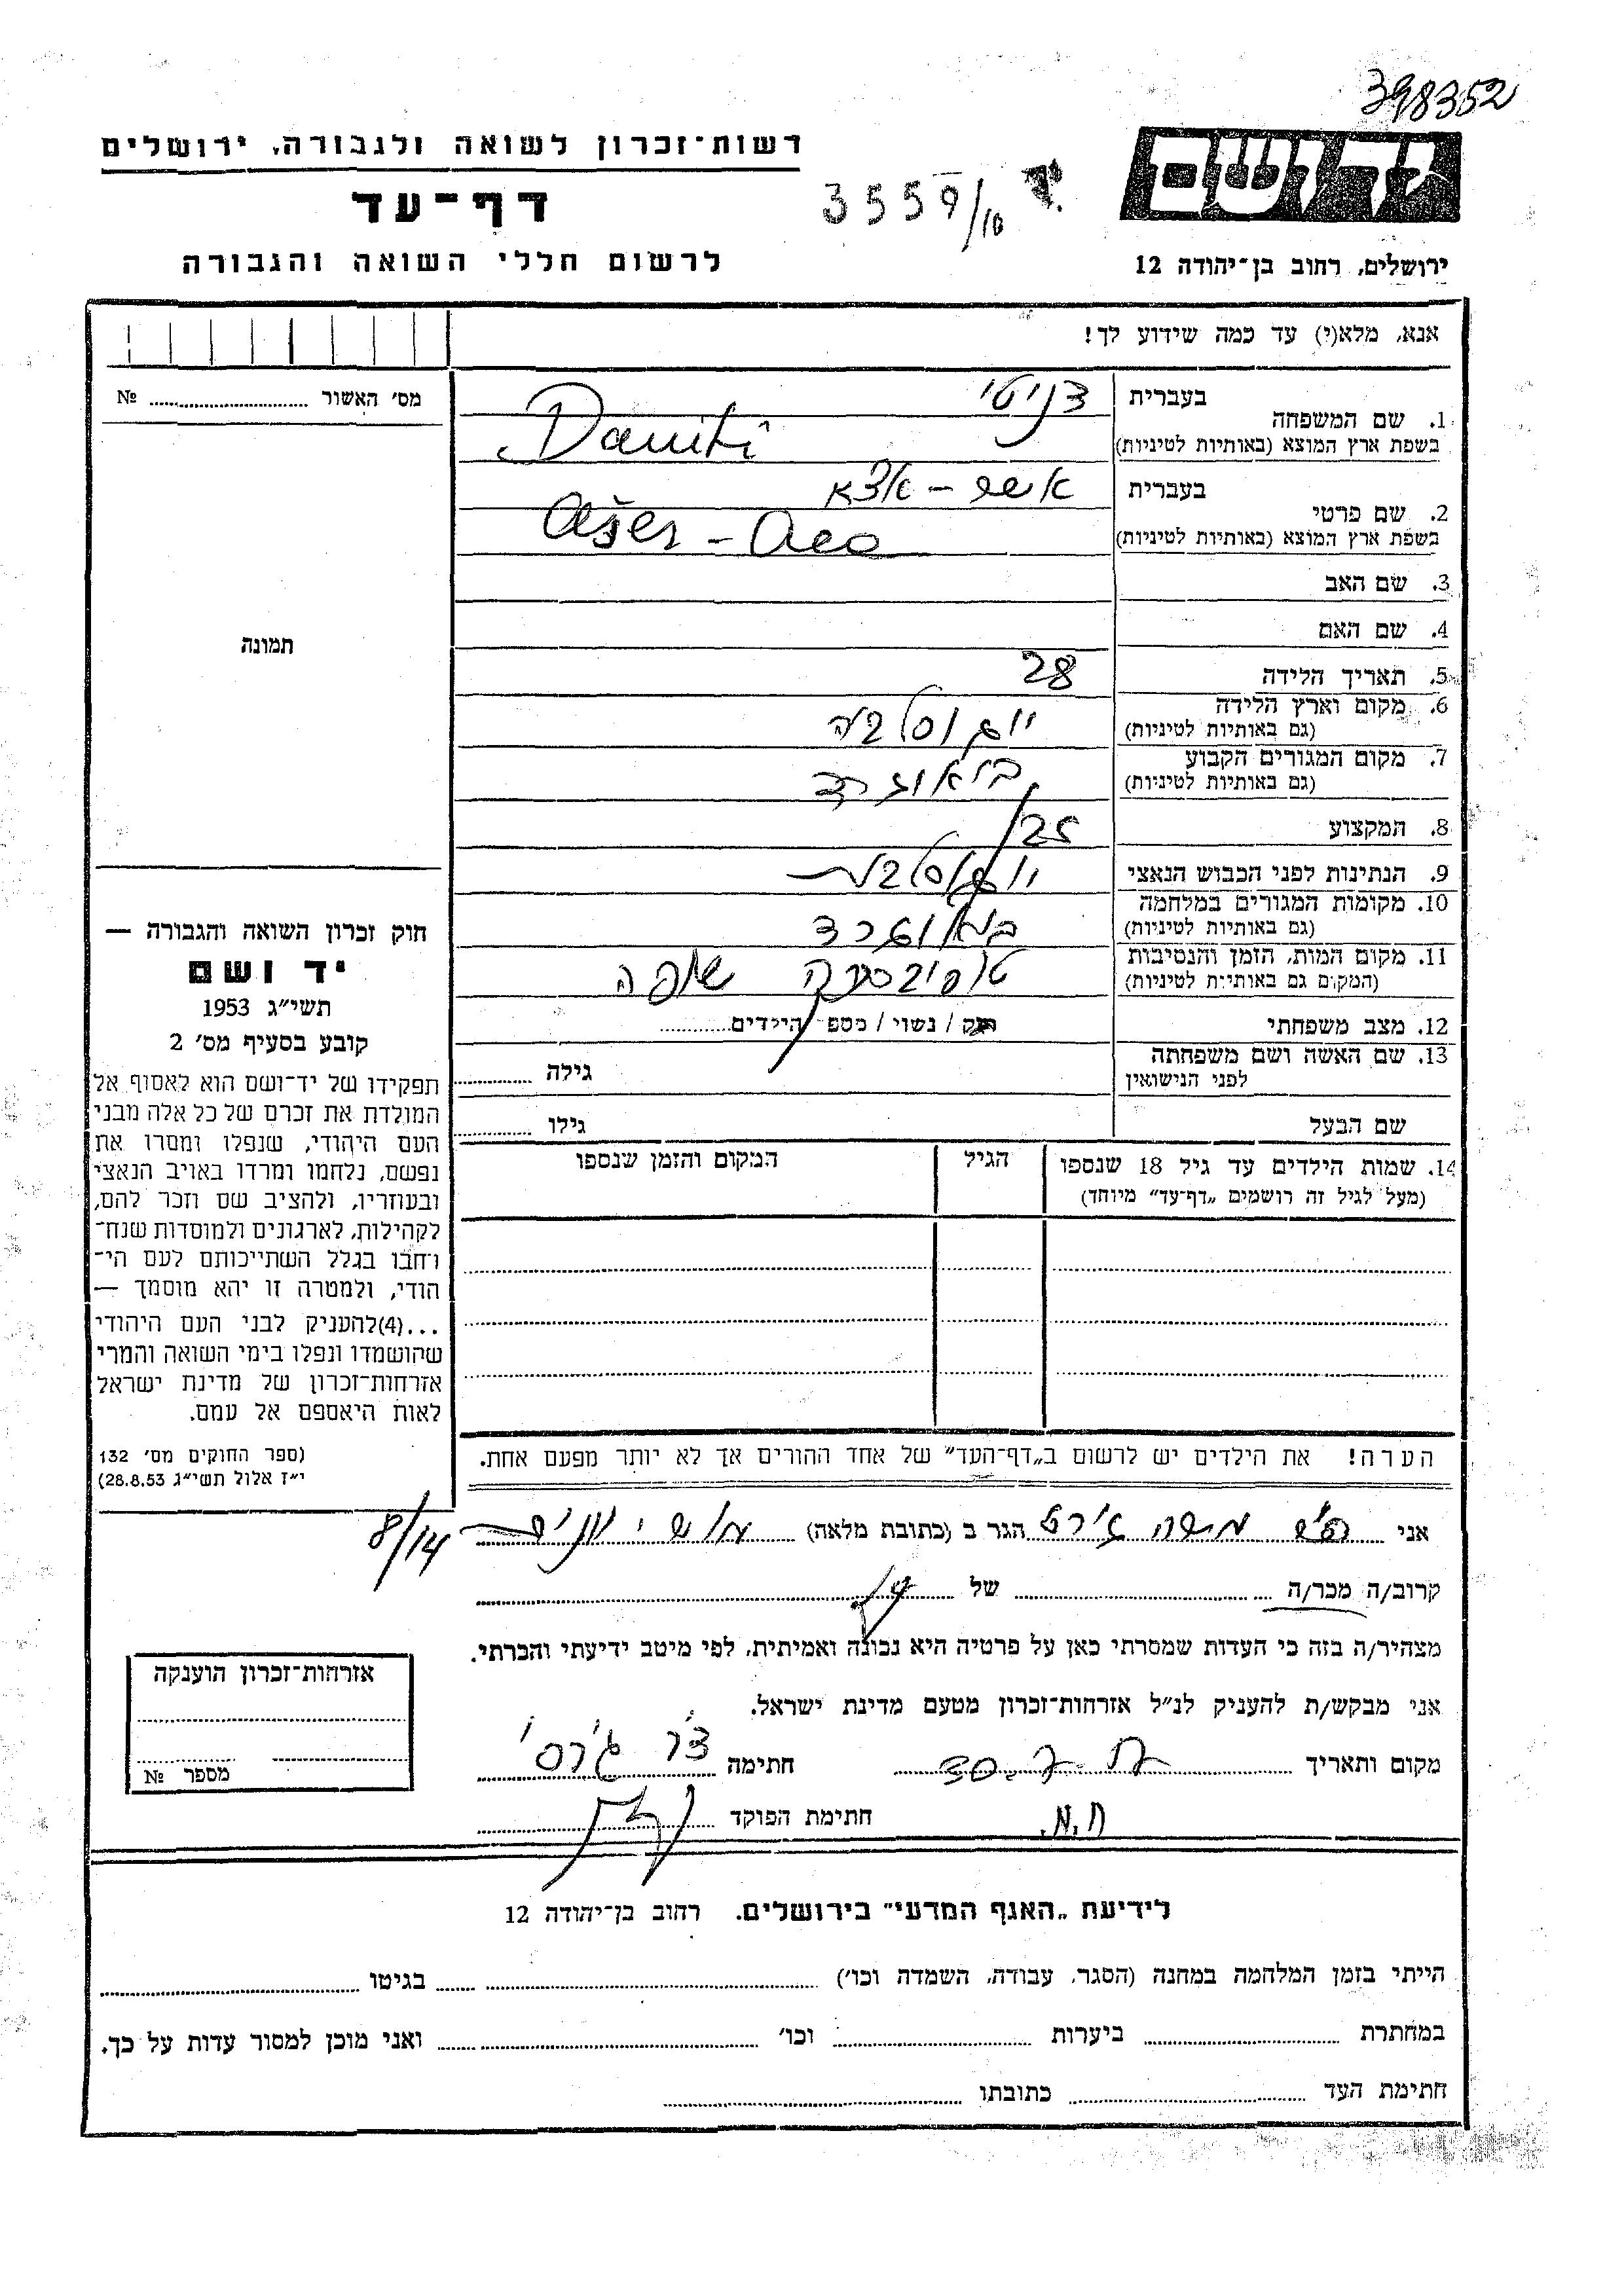 398352
רשות־זכרון לשואה ולגבורה, ירושלים
דף־עד
לרשום חללי השואה והגבורה
3559/10
יד ושם
ירושלים, רחוב בן־יהודה 12
אנא, מלא(י) עד כמה שידוע לך!
מס׳ האשור № 
תמונה
1. שם המשפחה
בעברית דניטי
בשפת ארץ המוצא (באותיות לטיניות) Daniti
2. שם פרטי
בעברית אשר - אצא
בשפת ארץ המוצא (באותיות לטיניות) Ašer -
3. שם האב
4. שם האם
5. תאריך הלידה 28
6. מקום וארץ הלידה
(גם באותיות לטיניות) יוגוסלביה
7. מקום המגורים הקבוע
(גם באותיות לטיניות)
8. המקצוע
9. הנתינות לפני הכבוש הנאצי
10. מקומות המגורים במלחמה
(גם באותיות לטיניות)
11. מקום המות, הזמן והנסיבות
(המקום גם באותיות לטיניות) טופובסקה שופה
12. מצב משפחתי רוק / נשוי / מספר הילדים
13. שם האשה ושם משפחתה
לפני הנישואין גילה
שם הבעל גילו
14. שמות הילדים עד גיל 18 שנספו
(מעל לגיל זה רושמים „דף־עד” מיוחד)
הגיל
המקום והזמן שנספו
חוק זכרון השואה והגבורה —
יד ושם
תשי״ג 1953
קובע בסעיף מס׳ 2
תפקידו של יד־ושם הוא לאסוף אל
המולדת את זכרם של כל אלה מבני
העם היהודי, שנפלו ומסרו את
נפשם, נלחמו ומרדו באויב הנאצי
ובעוזריו, ולהציב שם וזכר להם,
לקהילות, לארגונים ולמוסדות שנח־
רחבו בגלל השתייכותם לעם הי־
הודי, ולמטרה זו יהא מוסמך —
...(4)להעניק לבני העם היהודי
שהושמדו ונפלו בימי השואה והמרי
אזרחות־זכרון של מדינת ישראל
לאות היאספם אל עמם.
(ספר החוקים מס׳ 132
י״ז אלול תשי״ג 28.8.53)
הערה! את הילדים יש לרשום ב„דף־העד” של אחד ההורים אך לא יותר מפעם אחת.
אני משה הגר ב (כתובת מלאה)
8/14
קרוב/ה מכר/ה של
מצהיר/ה בזה כי העדות שמסרתי כאן על פרטיה היא נכונה ואמיתית, לפי מיטב ידיעתי והכרתי.
אני מבקש/ת להעניק לנ״ל אזרחות־זכרון מטעם מדינת ישראל.
מקום ותאריך חתימה
חתימת הפוקד
אזרחות־זכרון הוענקה
מספר №
לידיעת „האגף המדעי” בירושלים. רחוב בן־יהודה 12
הייתי בזמן המלחמה במחנה (הסגר, עבודה, השמדה וכו׳) בגיטו
במחתרת ביערות וכו׳ ואני מוכן למסור עדות על כך.
חתימת העד כתובתו